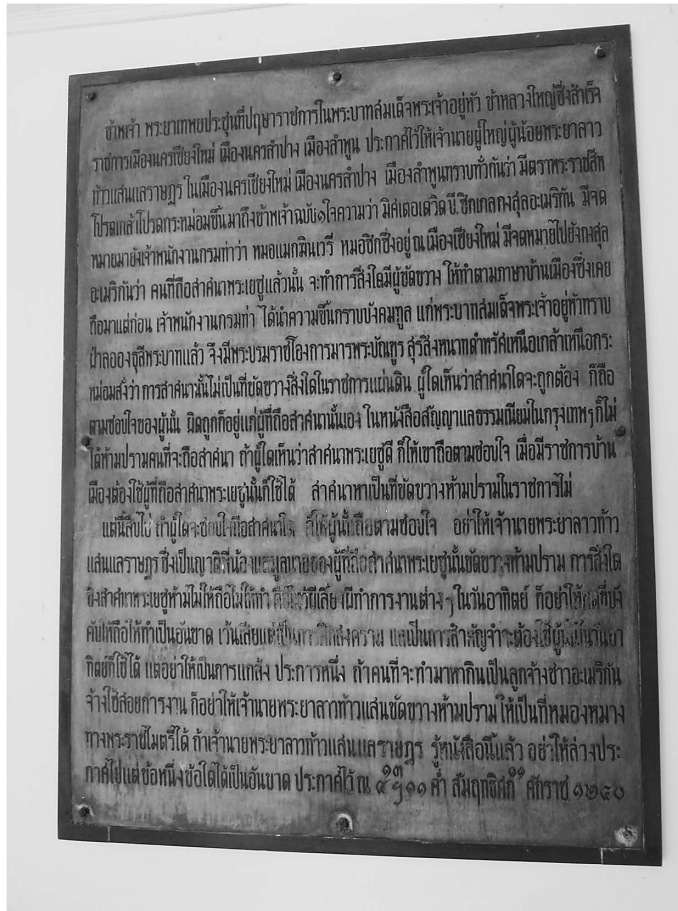 ข้าพเจ้า พระยาเทพยประชุนที่ปฤษาราชการในพระบาทสมเด็จพระเจ้าอยู่หัว ข้าหลวงใหญ่ซึ่งสำเร็จ
ราชการเมืองนครเชียงใหม่ เมืองนครลำปาง เมืองลำพูน ประกาศไว้ให้เจ้านายผู้ใหญ่ผู้น้อยพระยาลาว
ท้าวแสนแลราษฎร ในเมืองนครเชียงใหม่ เมืองนครลำปาง เมืองลำพูนทราบทั่วกันว่า มีตราพระราชสีห
โปรดเกล้าโปรดกระหม่อมขึ้นมาถึงข้าพเจ้าฉบับ๑ใจความว่า มิศเตอเดวิด บี. ซิกเกลกงสุลอะเมริกัน มีจด
หมายมายังเจ้าพนักงานกรมท่าว่า หมอแมกฆินเวรี หมอชิกซึ่งอยู่ ณ เมืองเชียงใหม่ มีจดหมายไปยังกงสุล
อะเมริกันว่า คนที่ถือสาศนาพระเยซูแล้วนั้น จะทำการสิ่งใดมีผู้ขัดขวาง ให้ทำตามภาษาบ้านเมืองซึ่งเคย
ถือมาแต่ก่อน เจ้าพนักงานกรมท่า ได้นำความขึ้นกราบบังคมทูล แก่พระบาทสมเด็จพระเจ้าอยู่หัวทราบ
ฝ่าลอองธุลีพระบาทแล้ว จึงมีพระบรมราชโองการมารพระบัณฑูร สุรสิงหนาทดำหรัศเหนือเกล้าเหนือกระ
หม่อมสั่งว่า การสาศนานั้นไม่เป็นที่ขัดขวางสิ่งใดในราชการแผ่นดิน ผู้ใดเห็นว่าสาศนาใดจะถูกต้อง ก็ถือ
ตามชอบใจของผู้นั้น ผิดถูกก็อยู่แก่ผู้ที่ถือสาศนานั้นเอง ในหนังสือสัญญาแลธรรมเนียมในกรุงเทพฯก็ไม่
ได้ห้ามปรามคนที่จะถือสาศนา ถ้าผู้ใดเห็นว่าสาศนาพระเยซูดี ก็ให้เขาถือตามชอบใจ เมื่อมีราชการบ้าน
เมืองต้องใช้ผู้ที่ถือสาศนาพระเยซูนั้นก็ใช้ได้ สาศนาหาเป็นที่ขัดขวางห้ามปรามในราชการไม่
แต่นี้สืบไป ถ้าผู้ใดจะชอบใจถือสาศนาใด ก็ให้ผู้นั้นถือตามชอบใจ อย่าให้เจ้านายพระยาลาวท้าว
แสนแลราษฎร ซึ่งเป็นญาติพี่น้องแลมูลนายของผู้ที่ถือสาศนาพระเยซูนั้นขัดขวางห้ามปราม การสิ่งใด
ซึ่งสาศนาพระเยซูห้ามไม่ให้ถือไม่ให้ทำ คือไหว้ผีเลี้ยงผีทำการงานต่าง ๆ ในวันอาทิตย์ ก็อย่าให้กดขี่บัง
คับให้ถือให้ทำเป็นอันขาด เว้นเสียแต่เป็นการศึกสงคราม แลเป็นการสำคัญจำจะต้องใช้ผู้นั้นในวันอา
ทิตย์ก็ใช้ได้ แต่อย่าให้เป็นการแกล้ง ประการหนึ่ง ถ้าคนที่จะทำมาหากินเป็นลูกจ้างชาวอะเมริกัน
จ้างใช้สอยการงาน ก็อย่าให้เจ้านายพระยาลาวท้าวแสนขัดขวางห้ามปราม ให้เป็นที่หมองหมาง
ทางพระราชไมตรีได้ ถ้าเจ้านายพระยาลาวท้าวแสนแลราษฎร รู้หนังสือนี้แล้ว อย่าให้ล่วงประ
กาศไปแต่ข้อหนึ่งข้อใดได้เป็นอันขาด ประกาศไว้ ณ ค่ำ สัมฤทธิศก ศักราช ๑๒๔๐